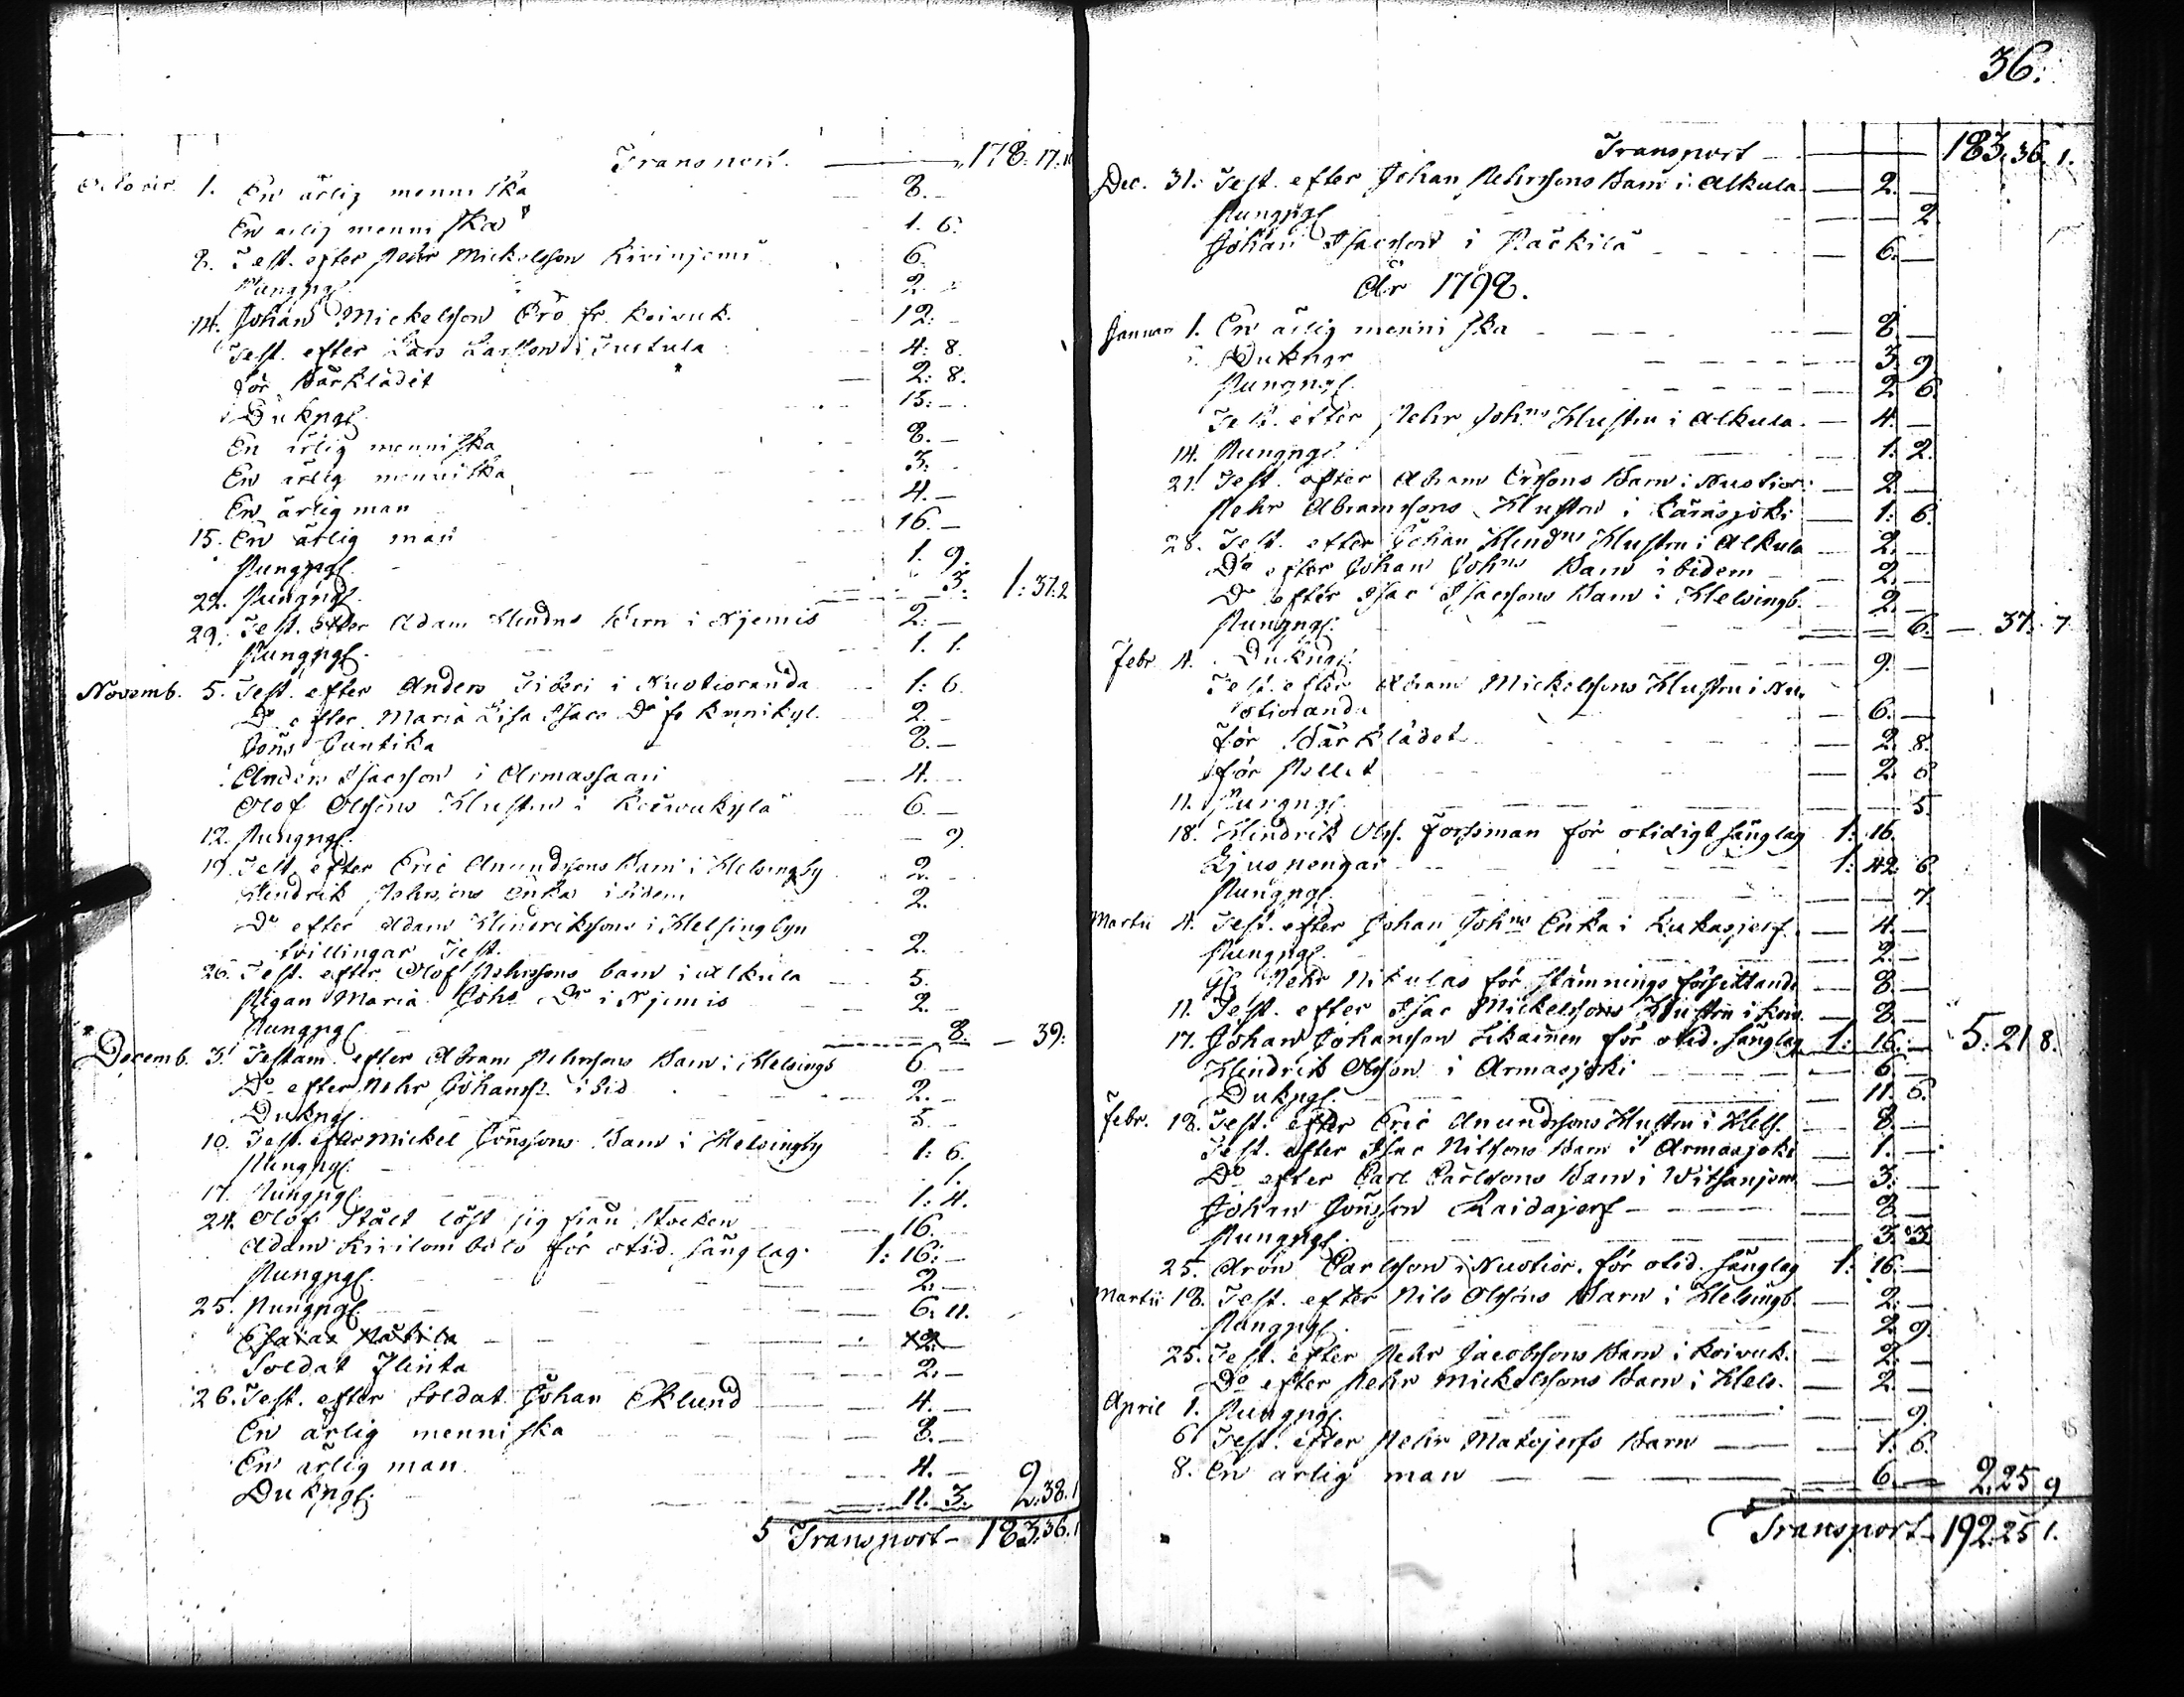 Transport 178. 17.
October 1. En ärlig menniska 8.
En ärlig menniska 1. 6.
8. Test. efter Pehr Mickelsson Kivinjemi 6.
Pungpgr. 2.
14. Johan Mickelsson Erö fr. Koivuk. 12.
Test. efter Lars Larsson i Turtula 4: 8.
för Bårklädet 2: 8.
Dukpgr. 15.
En ärlig menniska 8.
En ärlig menniska 3.
En ärlig man 4.
15. En ärlig man 16.
Pungpgr. 1. 9.
22. Pungpgr. 3. 1: 37. 2
29. Test. efter Adam Hindrs Barn i Njemis 2.
Pungpgr. 1. 1.
Novemb. 5. Test. efter Anders Fiskeri i Nuotioranda 1: 6.
Do efter Maria Lisa Isacs Dr fr Kunikyl. 2.
Jöns Juntika 8.
Anders Isacsson i Armassaari 4.
Olof Olssons Hustru i Koivukylä 6.
12. Pungpgr. 9.
19. Test. efter Eric Anundssons Barn i Helsingby 2.
Hindrik Pehrssons Enka ibidem 2.
Do efter Adam Hindrikssons i Helsingbyn
tvillingar Test. 2.
26. Test. efter Olof Pehrssons barn i Alkula 5.
Pigan Maria Johs Dr i Njemis 2.
Pungpgr. 8. 39:
Decemb. 3. Testam. efter Abram Pehrssons Barn i Helsingb 6.
Do efter Pehr Johanss. ibid 2.
Dukpgr. 5.
10. Test. efter Mickel Jönssons Barn i Helsingby 1: 6.
Pungpgr. 1.
17. Pungpgr. 1. 4.
24. Olof Stålt löst sig från Stocken 16.
Adam Kivilombolo för otid. sänglag. 1: 16:
Pungpgr. 2.
25. Pungpgr. 6. 11.
Soldat Flinta 2.
26. Test. efter Soldat Johan Eklund 4.
En ärlig menniska 8.
En ärlig man 4.
Dukpgr. 11. 3. 2. 38. 1
Transport 183. 36. 1
36.
Transport 183. 36. 1.
Dec. 31. Test. efter Johan Pehrssons Barn i Alkula 2.
Pungpgr 2.
Johan Isacsson i Päckilä 6.
År 1798.
Januari 1. En ärlig menniska 8.
Dukpgr 3. 9.
Pungpgr. 2. 6.
Test. efter Pehr Johns Hustru i Alkula. 4.
14. Pungpgr. 1. 2.
21. Test. efter Abram Erssons Barn i Nuotior. 2.
Pehr Abramssons Hustru i Kainsjoki 1. 6.
28. Test. efter Johan Hindrs Hustru i Alkula 2.
Do efter Johan Johns Barn ibidem 2.
Do efter Isac Isacssons Barn i Helsingb. 2.
Pungpgr. 6. 37. 7
Febr. 4. Dukpgr. 9.
Test. efter Abram Mickelssons Hustru i Nu-
otioranda 6.
för Bårklädet 2. 8.
för Pellet 2. 6.
11. Pungpgr. 5.
18. Hindrik Olss. Forssman för otidigt sänglag 1: 16.
Ljuspengar 1: 42. 6.
Pungpgr. 7
Martii 4. Test. efter Johan Johns Enka i Kukasjerf. 4.
Pungpgr. 2.
Pehr Nikulas för stämnings försittande 8.
11. Test. efter Isac Mickelssons Hustru i Koiv. 8.
17. Johan Johansson Likainen för otid. sänglag 1: 16. 5: 21 8.
Hindrik Olsson i Armasjoki 6.
Dukpgr. 11. 6.
Febr. 18. Test. efter Eric Anundssons Hustru i Hels. 8.
Test. efter Isac Nilssons Barn i Armasjoki 1.
Do efter Carl Carlssons Barn i Witsanjem. 3.
Johan Jönsson Raidajerf 8.
Pungpgr. 3. 3.
25. Aron Carlsson i Nuotior. för otid. sänglag 1: 16.
Martii 18. Test. efter Nils Olssons Barn i Helsingb. 2.
Pungpgr. 2. 9.
25. Test. efter Pehr Jacobssons Barn i Koivuk. 2.
Do efter Pehr Mickelssons Barn i Hels. 2.
April 1. Pungpgr. 9.
6. Test. efter Pehr Matojerfs Barn 1. 6.
8. En ärlig man 6. 2. 25 9
Transport 192. 25 1.